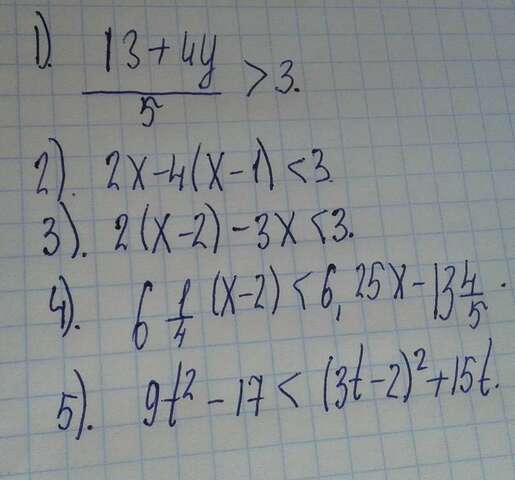 1). 13+4y / 5 > 3.
2). 2x-4(x-1)<3.
3). 2(x-2)-3x<3.
4). 6 1/4 (x-2)<6,25x-13 4/5.
5). 9t²-17<(3t-2)²+15t.